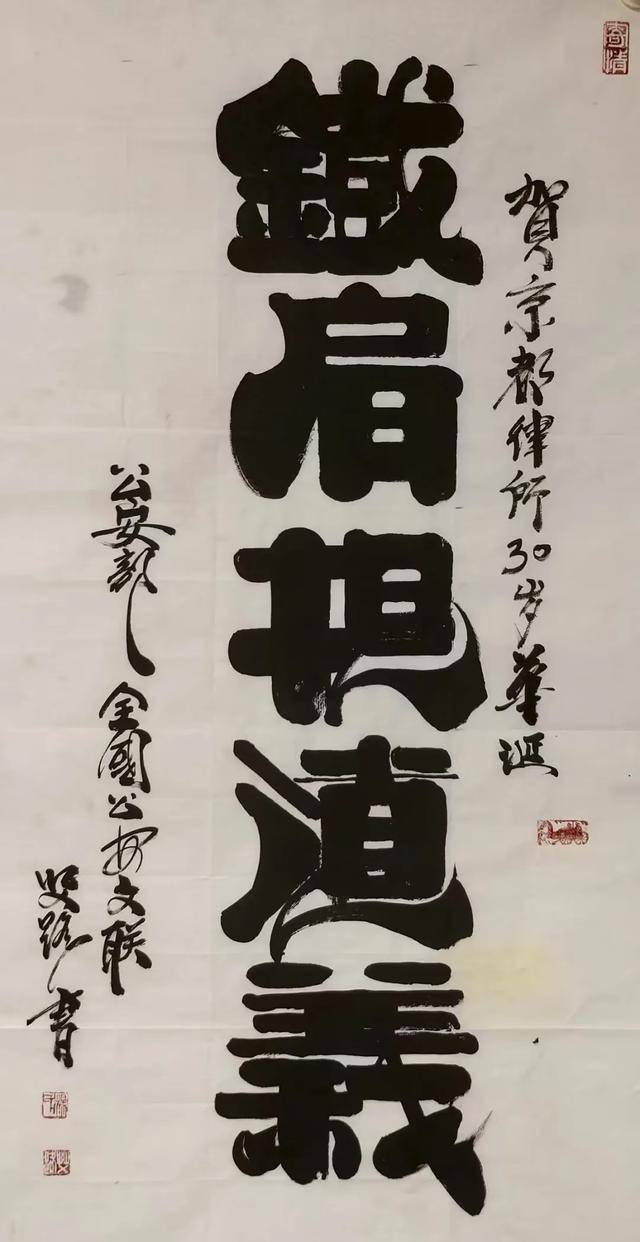 賀京都律所30岁華诞
鐵肩担道義
公安部、全國公安文联
路書